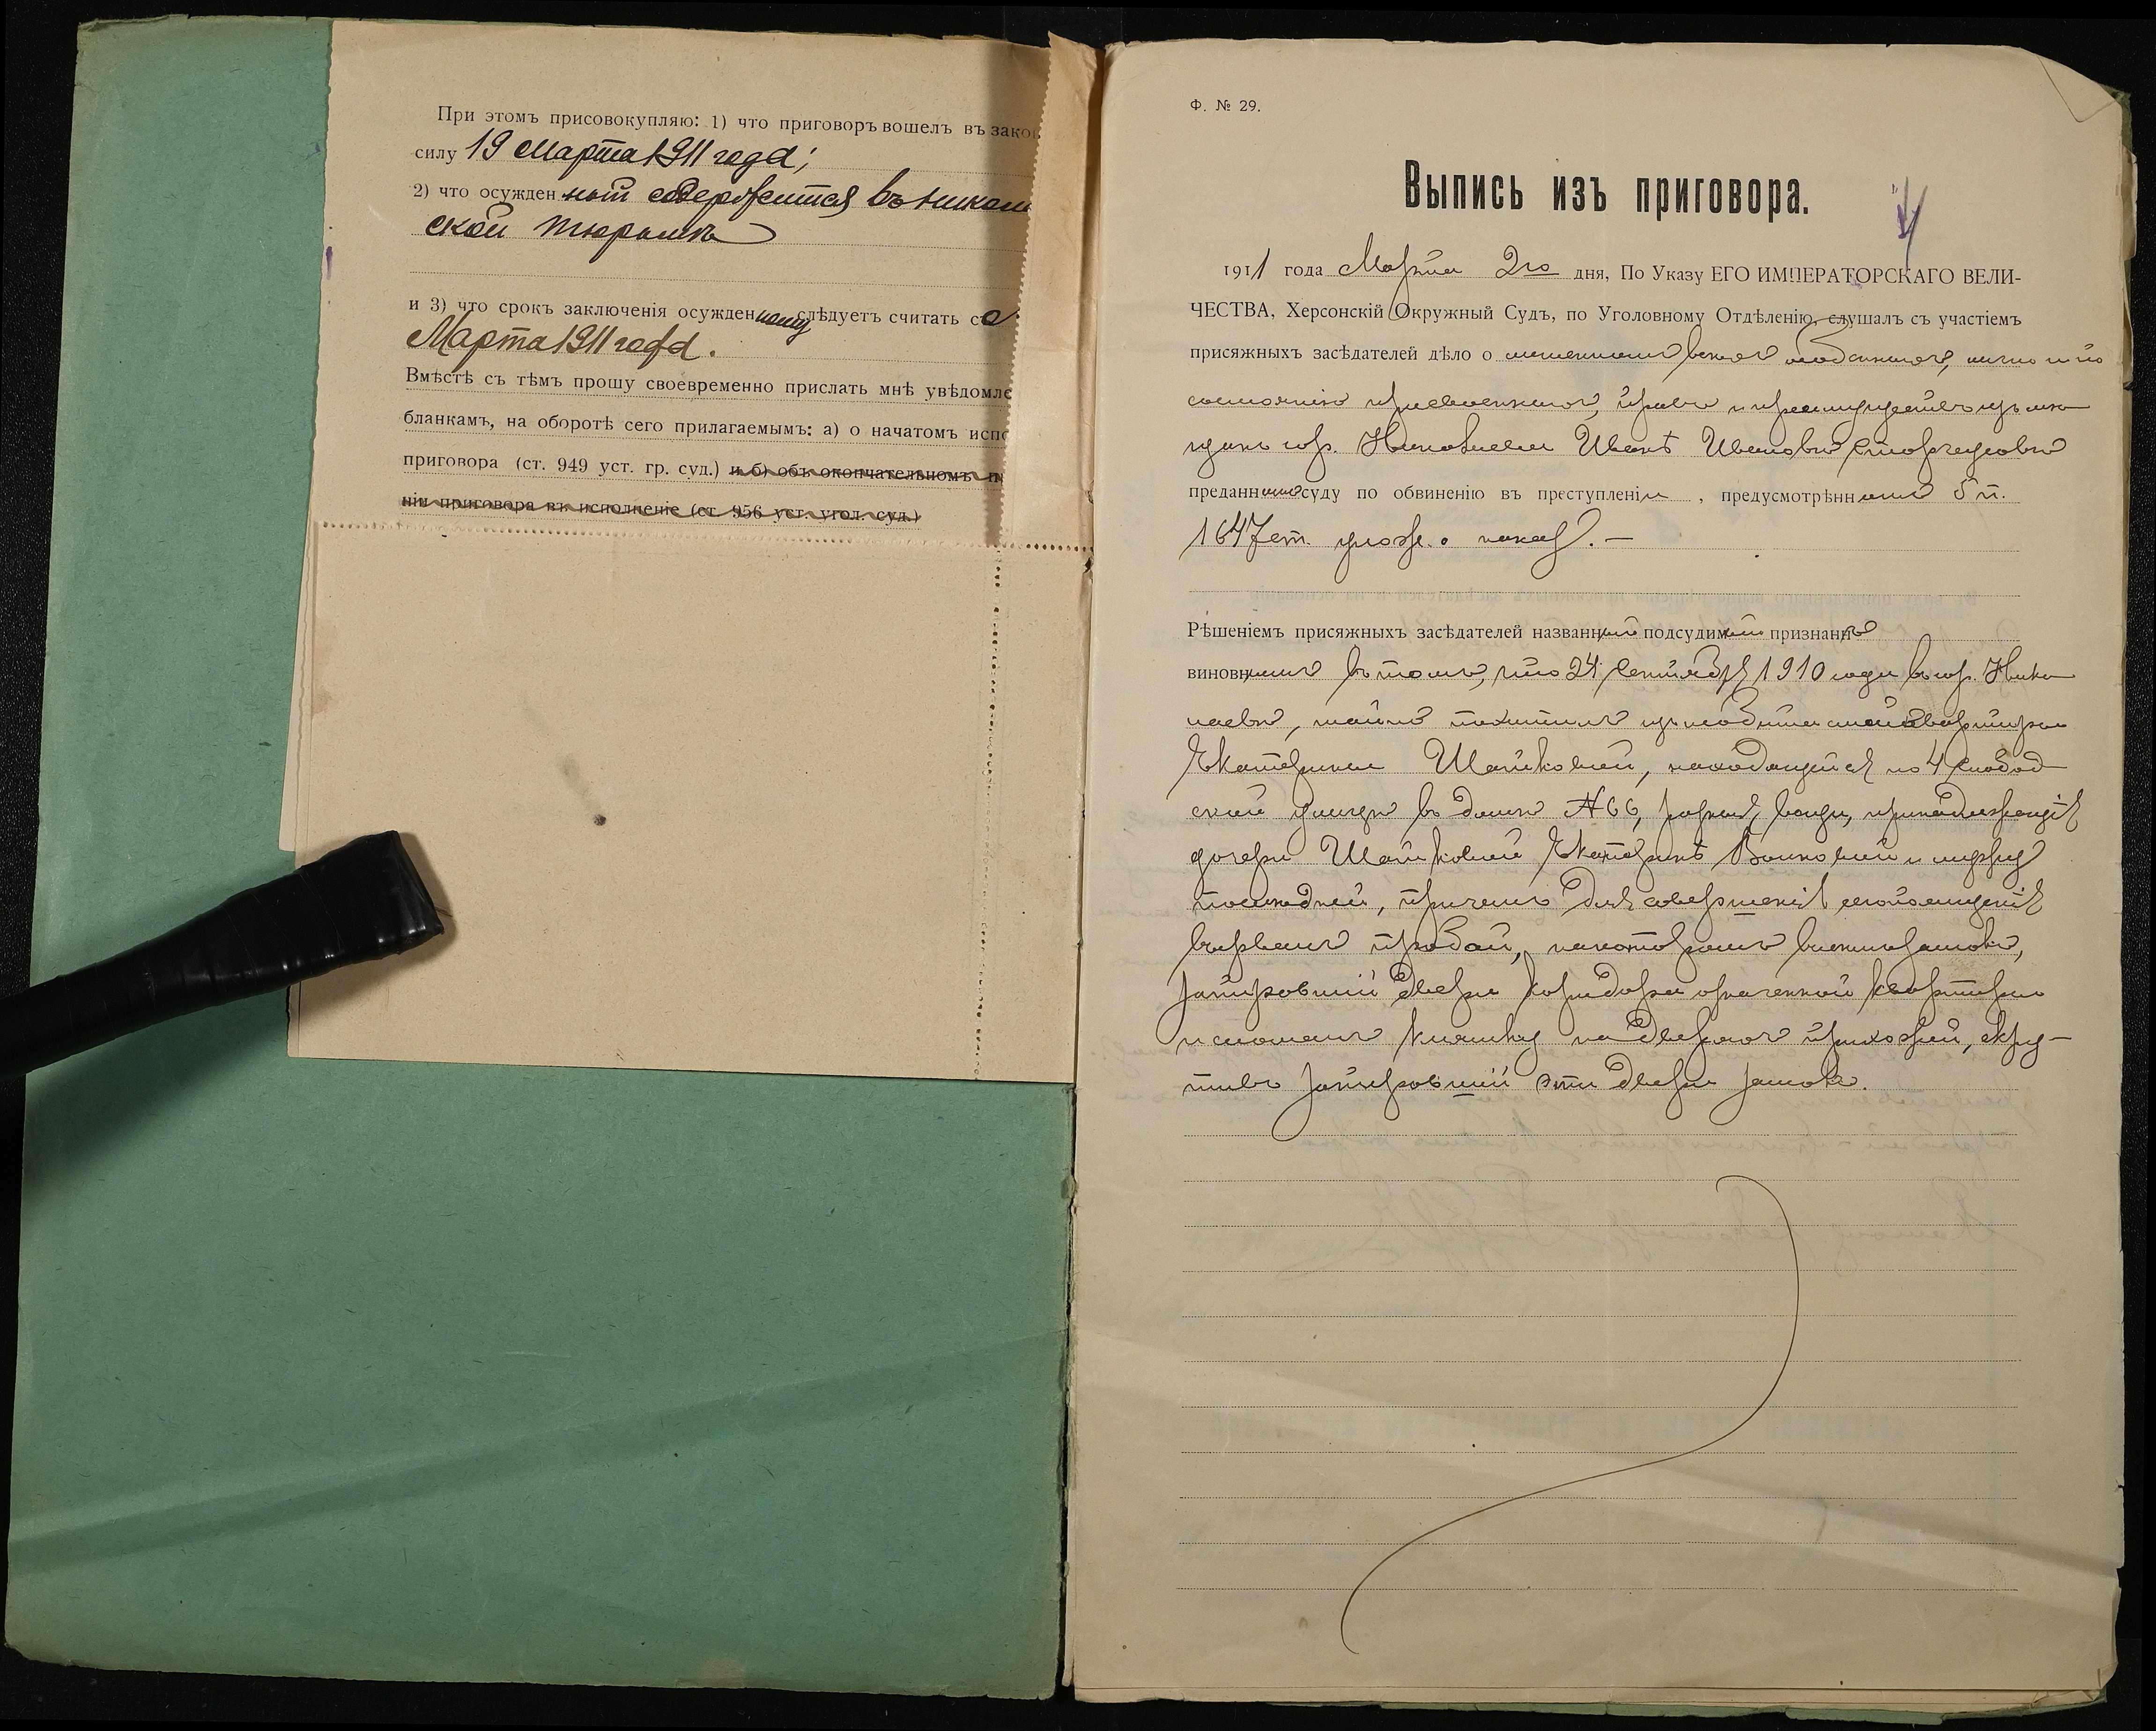 При этомъ присовокупляю: 1) что приговоръ вошелъ въ зако
силу 19 Марта 1911 года;
2) что осужденный содержится въ Никола
ской тюрьмѣ
и 3) что срокъ заключенія осужденному слѣдуетъ считать с
Марта 1911 года.
Вмѣстѣ съ тѣмъ прошу своевременно прислать мнѣ увѣдомле
бланкамъ, на оборотѣ сего прилагаемымъ: а) о начатомъ испо
приговора (ст. 949 уст. гр. суд.) и б) объ окончательномъ п
ніи приговора въ исполненіе (ст. 956 уст. угол. суд.)
Ф. № 29.
Выпись изъ приговора.
1911 года Марта 2го дня, По Указу ЕГО ИМПЕРАТОРСКАГО ВЕЛИ-
ЧЕСТВА, Херсонскій Окружный Судъ, по Уголовному Отдѣленію, слушалъ съ участіемъ
присяжныхъ засѣдателей дѣло о лишенномъ всѣхъ особенныхъ, лично и по
состоянію присвоенныхъ, правъ и преимуществъ мѣща
нинѣ гор. Николаева Иванѣ Ивановѣ
преданномъ суду по обвиненію въ преступленіи, предусмотрѣнномъ 5 п.
1647 ст. улож. о наказ. —
Рѣшеніемъ присяжныхъ засѣдателей названный подсудимый признанъ
виновнымъ въ томъ, что 24 Сентября 1910 года въ гор. Нико
лаевѣ, тайно похитилъ изъ обитаемой квартиры
Екатерины Шайковой, находящейся по 4 Слобод
ской улицѣ въ домѣ № 66, разныя вещи, принадлежащія
дочери Шайковой Екатеринѣ Волковой и мужу
послѣдней, причемъ для совершенія сего похищенія
вырвалъ пробой, на которомъ висѣлъ замокъ,
запиравшій двери коридора означенной квартиры
и сломалъ клямку на дверяхъ прихожей, скру-
тивъ запиравшій эти двери замокъ.